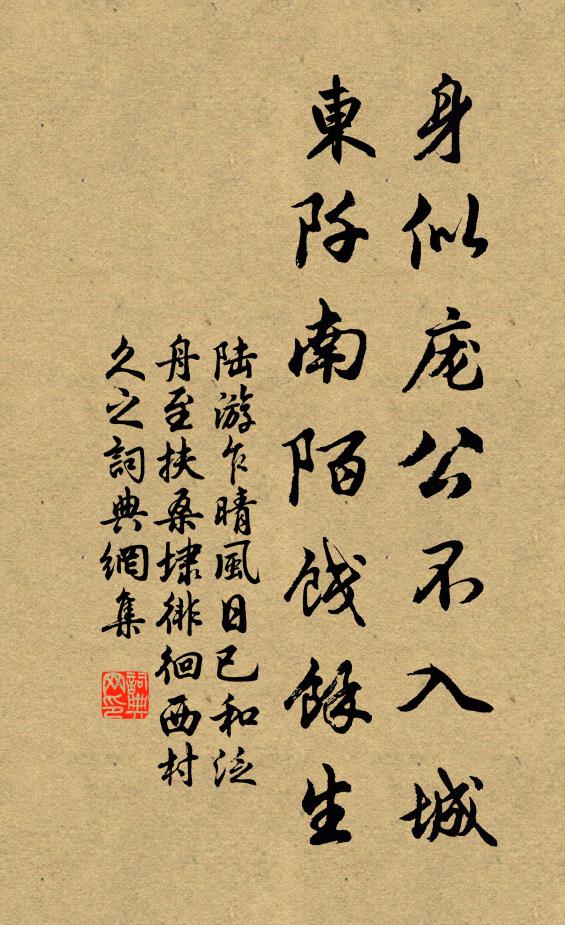 身似庞公不入城
東阡南陌餞餘生
陆游乍晴風日已和泛
舟至扶桑埭徘徊西村
久之詞典網集
詞典網印